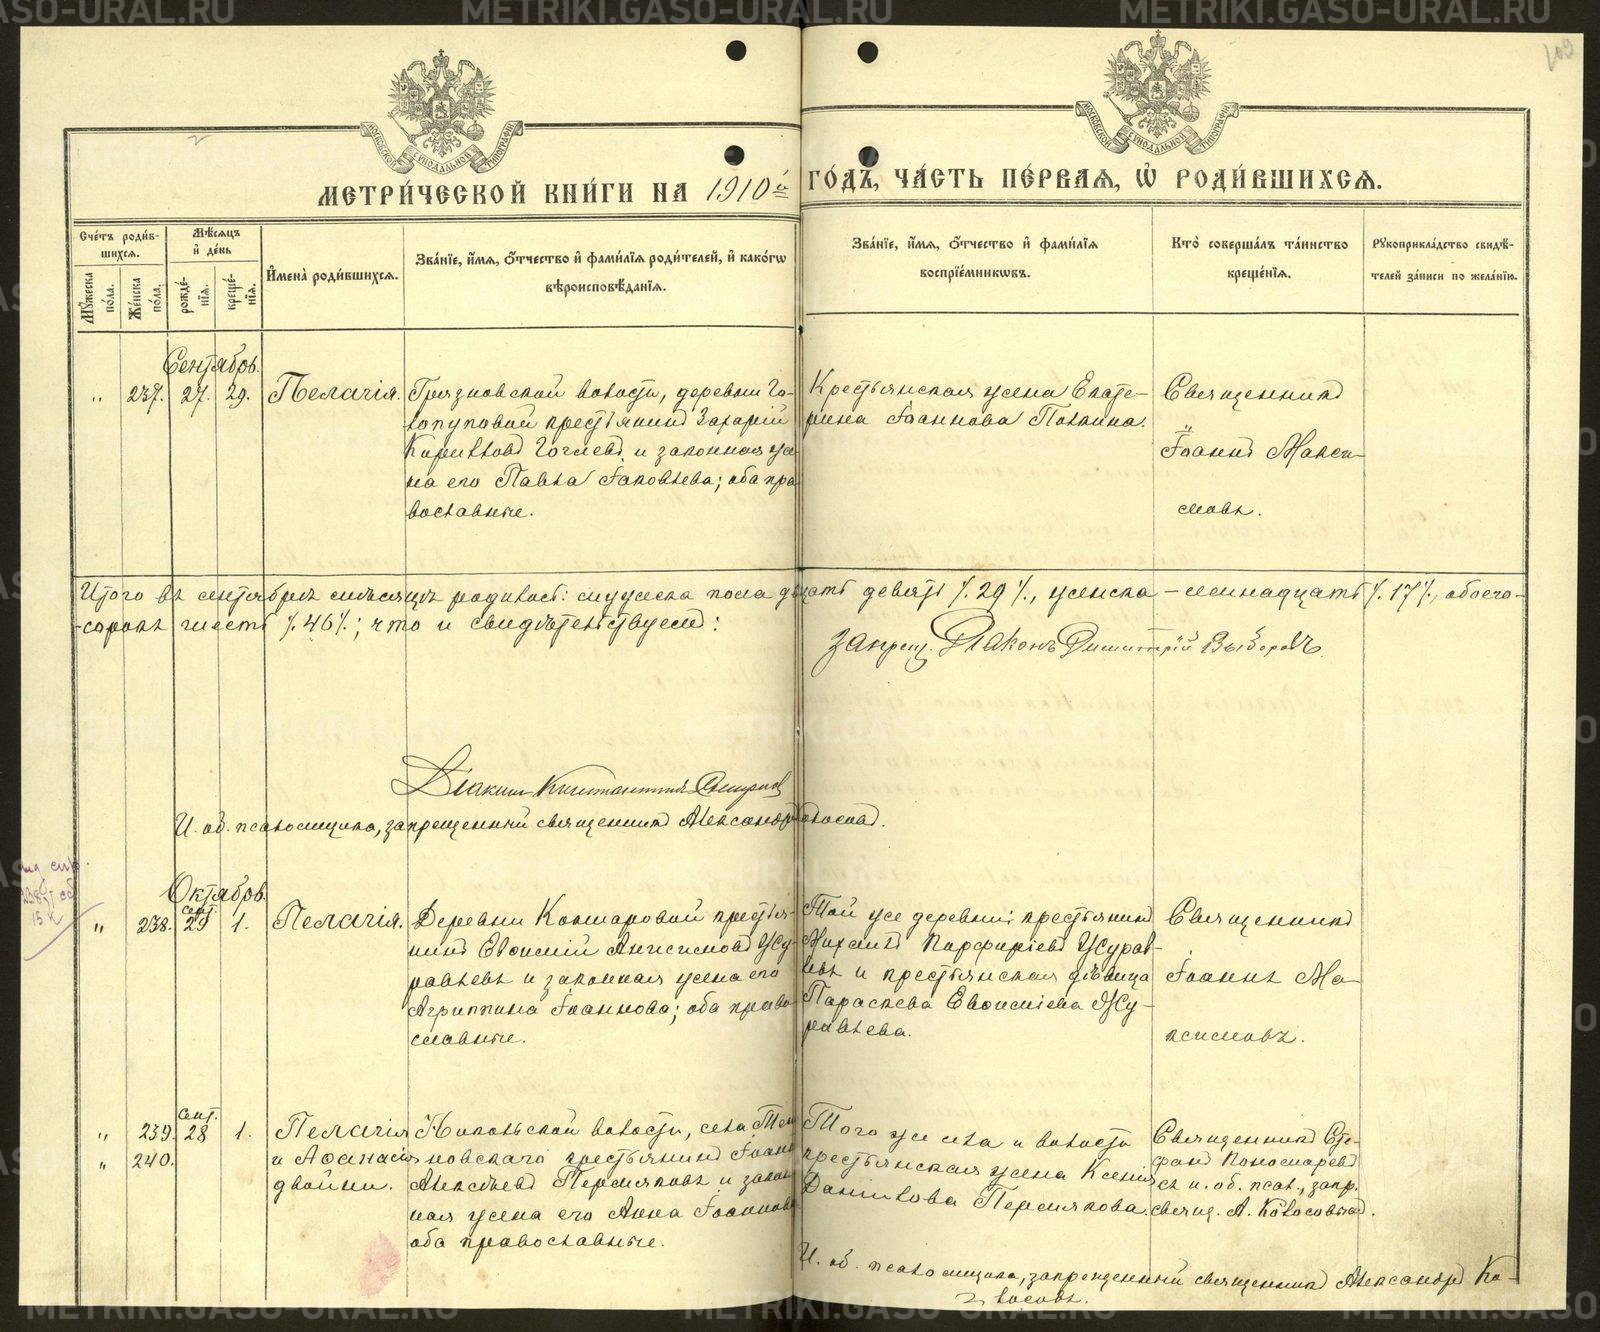 МЕТРИ́ЧЕСКОЙ КНИ́ГИ НА 1910й ГО́ДЪ, ЧА́СТЬ ПЕ́РВАЯ, Ѡ РОДИ́ВШИХСЯ.
Сче́тъ роди́в-
шихся.
Мꙋ́жеска по́ла.
Же́нска по́ла.
Мѣ́сяцъ
и҆ де́нь
рожде́-
нїя.
креще́-
нїя.
И҆мена̀ роди́вшихся.
Зва́нїе, и҆́мя, ѻ҆́тчество и҆ фами́лїя роди́телей, и҆ како́гѡ
вѣроисповѣ́данїя.
Зва́нїе, и҆́мя, ѻ҆́тчество и҆ фами́лїя
воспрїе́мникѡвъ.
Кто̀ соверша́лъ та́инство
креще́нїя.
Рꙋкоприкла́дство свидѣ́-
телей за́писи по жела́нїю.
Сентябрь.
" 237. 27. 29. Пелагія.
Грязновской волости, деревни Го-
лопуповой крестьянинъ Захарій
Кирилловъ и законная же-
на его Павла Іаковлева; оба пра
вославные.
Крестьянская жена Екате-
рина Іоаннова
Священникъ
Іоаннъ Макси-
мовъ.
Итого въ сентябрѣ мѣсяцѣ родилось: мужеска пола двадцать девять /.29/., женска – семнадцать /.17/., обоего-
-сорокъ шесть /.46/.; что и свидѣтельствуемъ:
запрещ. Діаконъ Димитрій Выборовъ
Діаконъ Константинъ Смирнов
И. об. псаломщика, запрещенный священникъ Александръ Колосовъ.
Октябрь.
" 238. сент. 29 1. Пелагія.
Деревни Кошкаровой крестья-
нинъ Евѳимій Анисимовъ Жу-
равлевъ и законная жена его
Агриппина Іоаннова; оба право-
славные.
Той же деревни: крестьянинъ
Михаилъ Парфиріевъ Журав-
левъ и крестьянская дѣвица
Параскева Евѳиміева Жу-
равлева.
Священникъ
Іоаннъ Ма-
ксимовъ.
" 239. сент. 28 1. Пелагія
" 240. и Аѳанасія
двойни.
Никольской волости, села Тем
новскаго крестьянинъ Іоаннъ
Алексѣевъ Пермяковъ и закон
ная жена его Анна Іоаннова
оба православные.
Того же села и волости
крестьянская жена Ксенія
Даниловa Пермякова.
Священникъ Сте-
фанъ Пономаревъ
съ и. об. псал., запр.
свящ. А. Колосовымъ.
И. об. псаломщика, запрещенный священникъ Александръ Ко-
лосовъ.